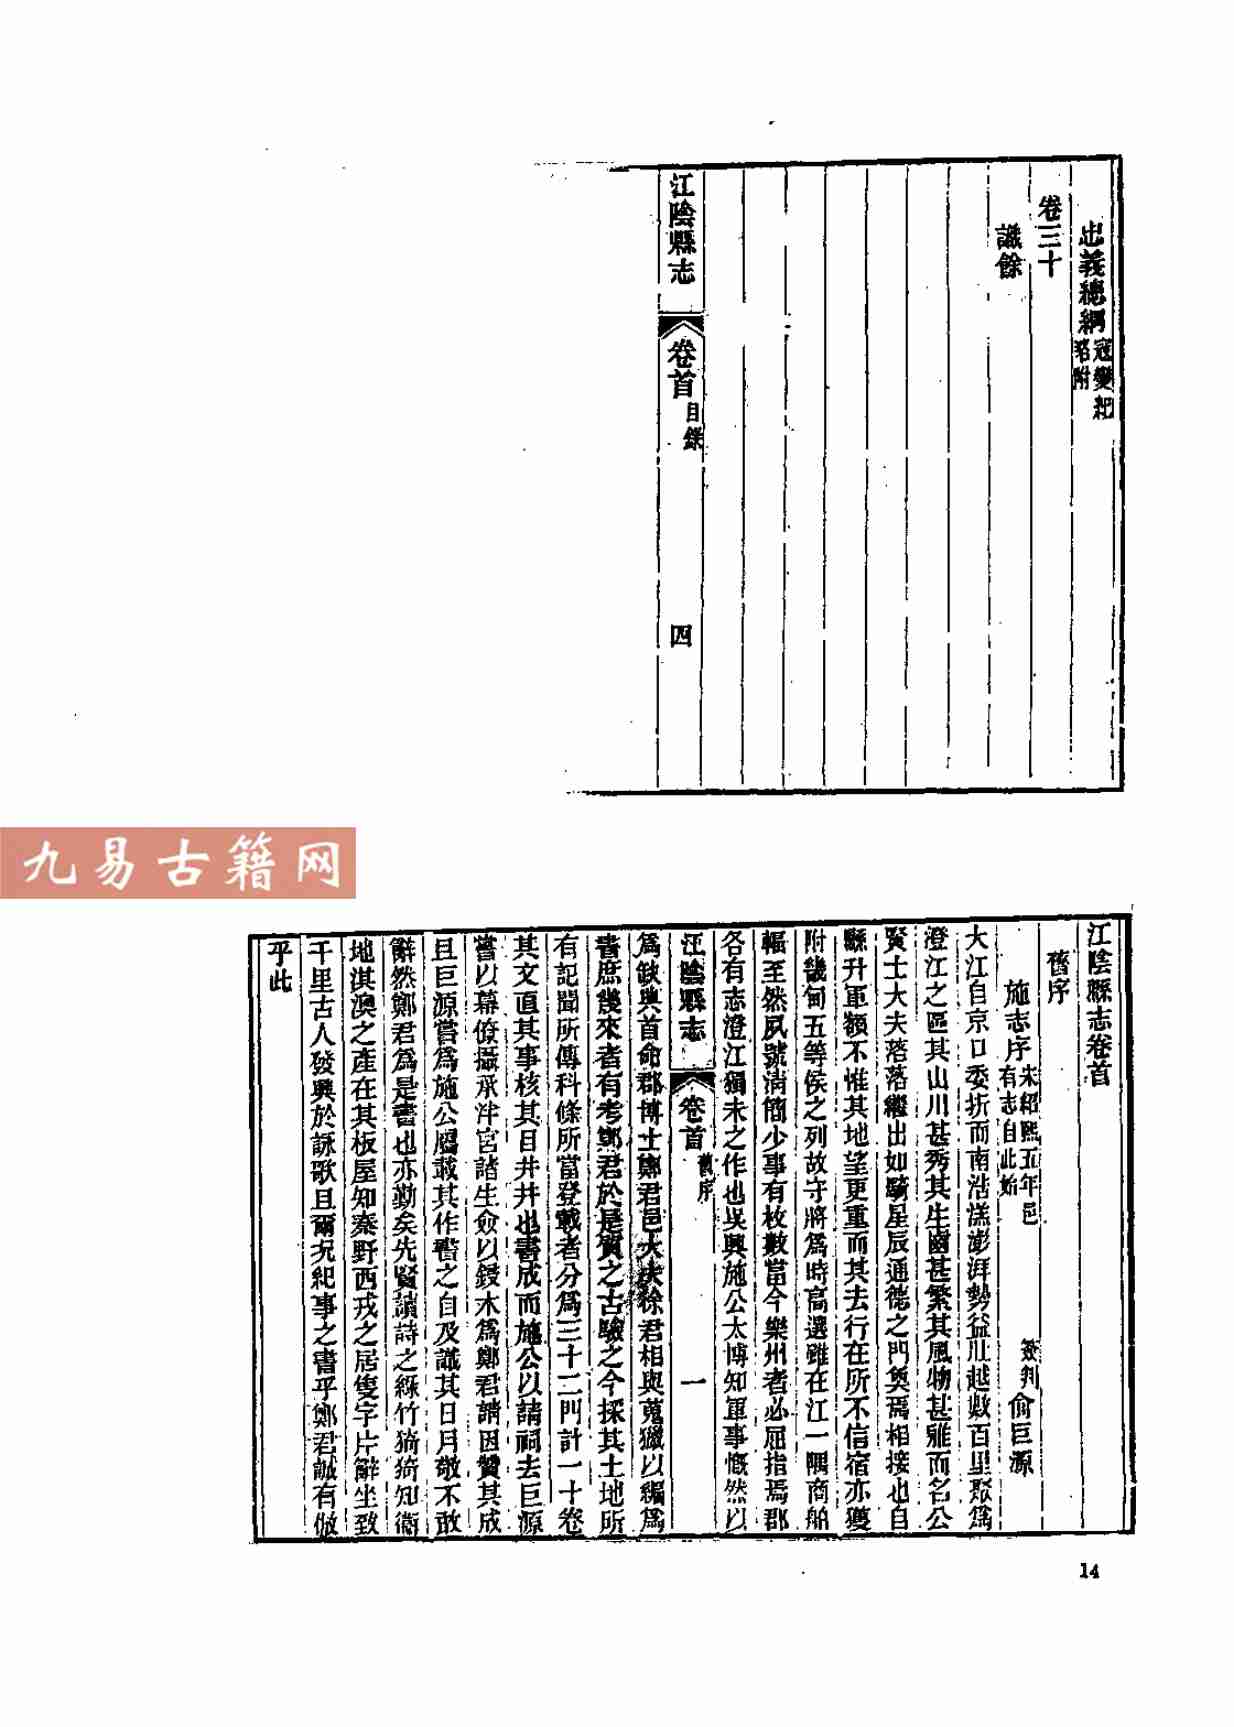 忠義總綱寇變紀略附
卷三十
識餘
江陰縣志
卷首目錄
四
九易古籍网
江陰縣志卷首
舊序
施志序宋紹熙五年邑有志自此始 簽判俞巨源
大江自京口委折而南浩渺澎湃勢益壯越數百里聚爲
澄江之區其山川甚秀其生齒甚繁其風物甚雅而名公
賢士大夫落落繼出如騎星辰通德之門奐焉相接也自
縣升軍額不惟其地望更重而其去行在所不信宿亦獲
附畿甸五等侯之列故守將爲時高選雖在江一隅商舶
輻至然夙號清簡少事有枚數當今樂州者必屈指焉郡
各有志澄江獨未之作也吳興施公太博知軍事慨然以
江陰縣志
卷首舊序
一
爲缺典首命郡博士鄭君邑大夫徐君相與蒐獵以編爲
書庶幾來者有考鄭君於是質之古驗之今採其土地所
有記聞所傳科條所當登載者分爲三十二門計一十卷
其文直其事核其目井井也書成而施公以請祠去巨源
嘗以幕僚攝承泮宮諸生僉以鋟木爲鄭君請因贊其成
且巨源嘗爲施公屬敢其作書之自及識其日月敬不敢
辭然鄭君爲是書也亦勤矣先賢讀詩之綠竹猗猗知衛
地淇澳之產在其板屋知秦野西戎之居隻字片辭坐致
千里古人發興於詠歌且爾況紀事之書乎鄭君誠有倣
乎此
14